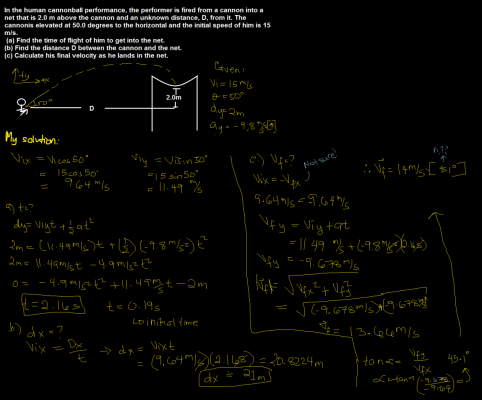 In the human cannonball performance, the performer is fired from a cannon into a
net that is 2.0 m above the cannon and an unknown distance, D, from it. The
cannonis elevated at 50.0 degrees to the horizontal and the initial speed of him is 15
m/s.
(a) Find the time of flight of him to get into the net.
(b) Find the distance D between the cannon and the net.
(c) Calculate his final velocity as he lands in the net.
+y
+x
50°
D
2.0m
Given:
Vi = 15 m/s
θ = 50°
dy = 2m
ag = -9.8 m/s²
My solution:
Vix = Vicos50°
= 15cos50°
= 9.64 m/s
Viy = Visin50°
= 15 sin50°
= 11.49 m/s
a) t=?
dy = Viyt + ½at²
2m = (11.49m/s)t + (½)(-9.8m/s²)t²
2m = 11.49m/st - 4.9m/s²t²
0 = -4.9m/s²t² + 11.49m/st - 2m
t = 2.16s
t = 0.19s
initial time
b) dx = ?
Vix = Dx/t → dx = Vixt
= (9.64m/s)(2.16s) = 20.8224m
dx = 21m
c) Vf = ?
Vix = Vfx
9.64m/s = 9.64m/s
Vfy = Viy + at
= 11.49 m/s + (-9.8m/s²)(2.16s)
Vfy = -9.678m/s
|Vf| = √Vfx² + Vfy²
Vf = 13.66m/s
tan∝ = Vfy/Vfx
45.1°
∴ Vf = 14m/s